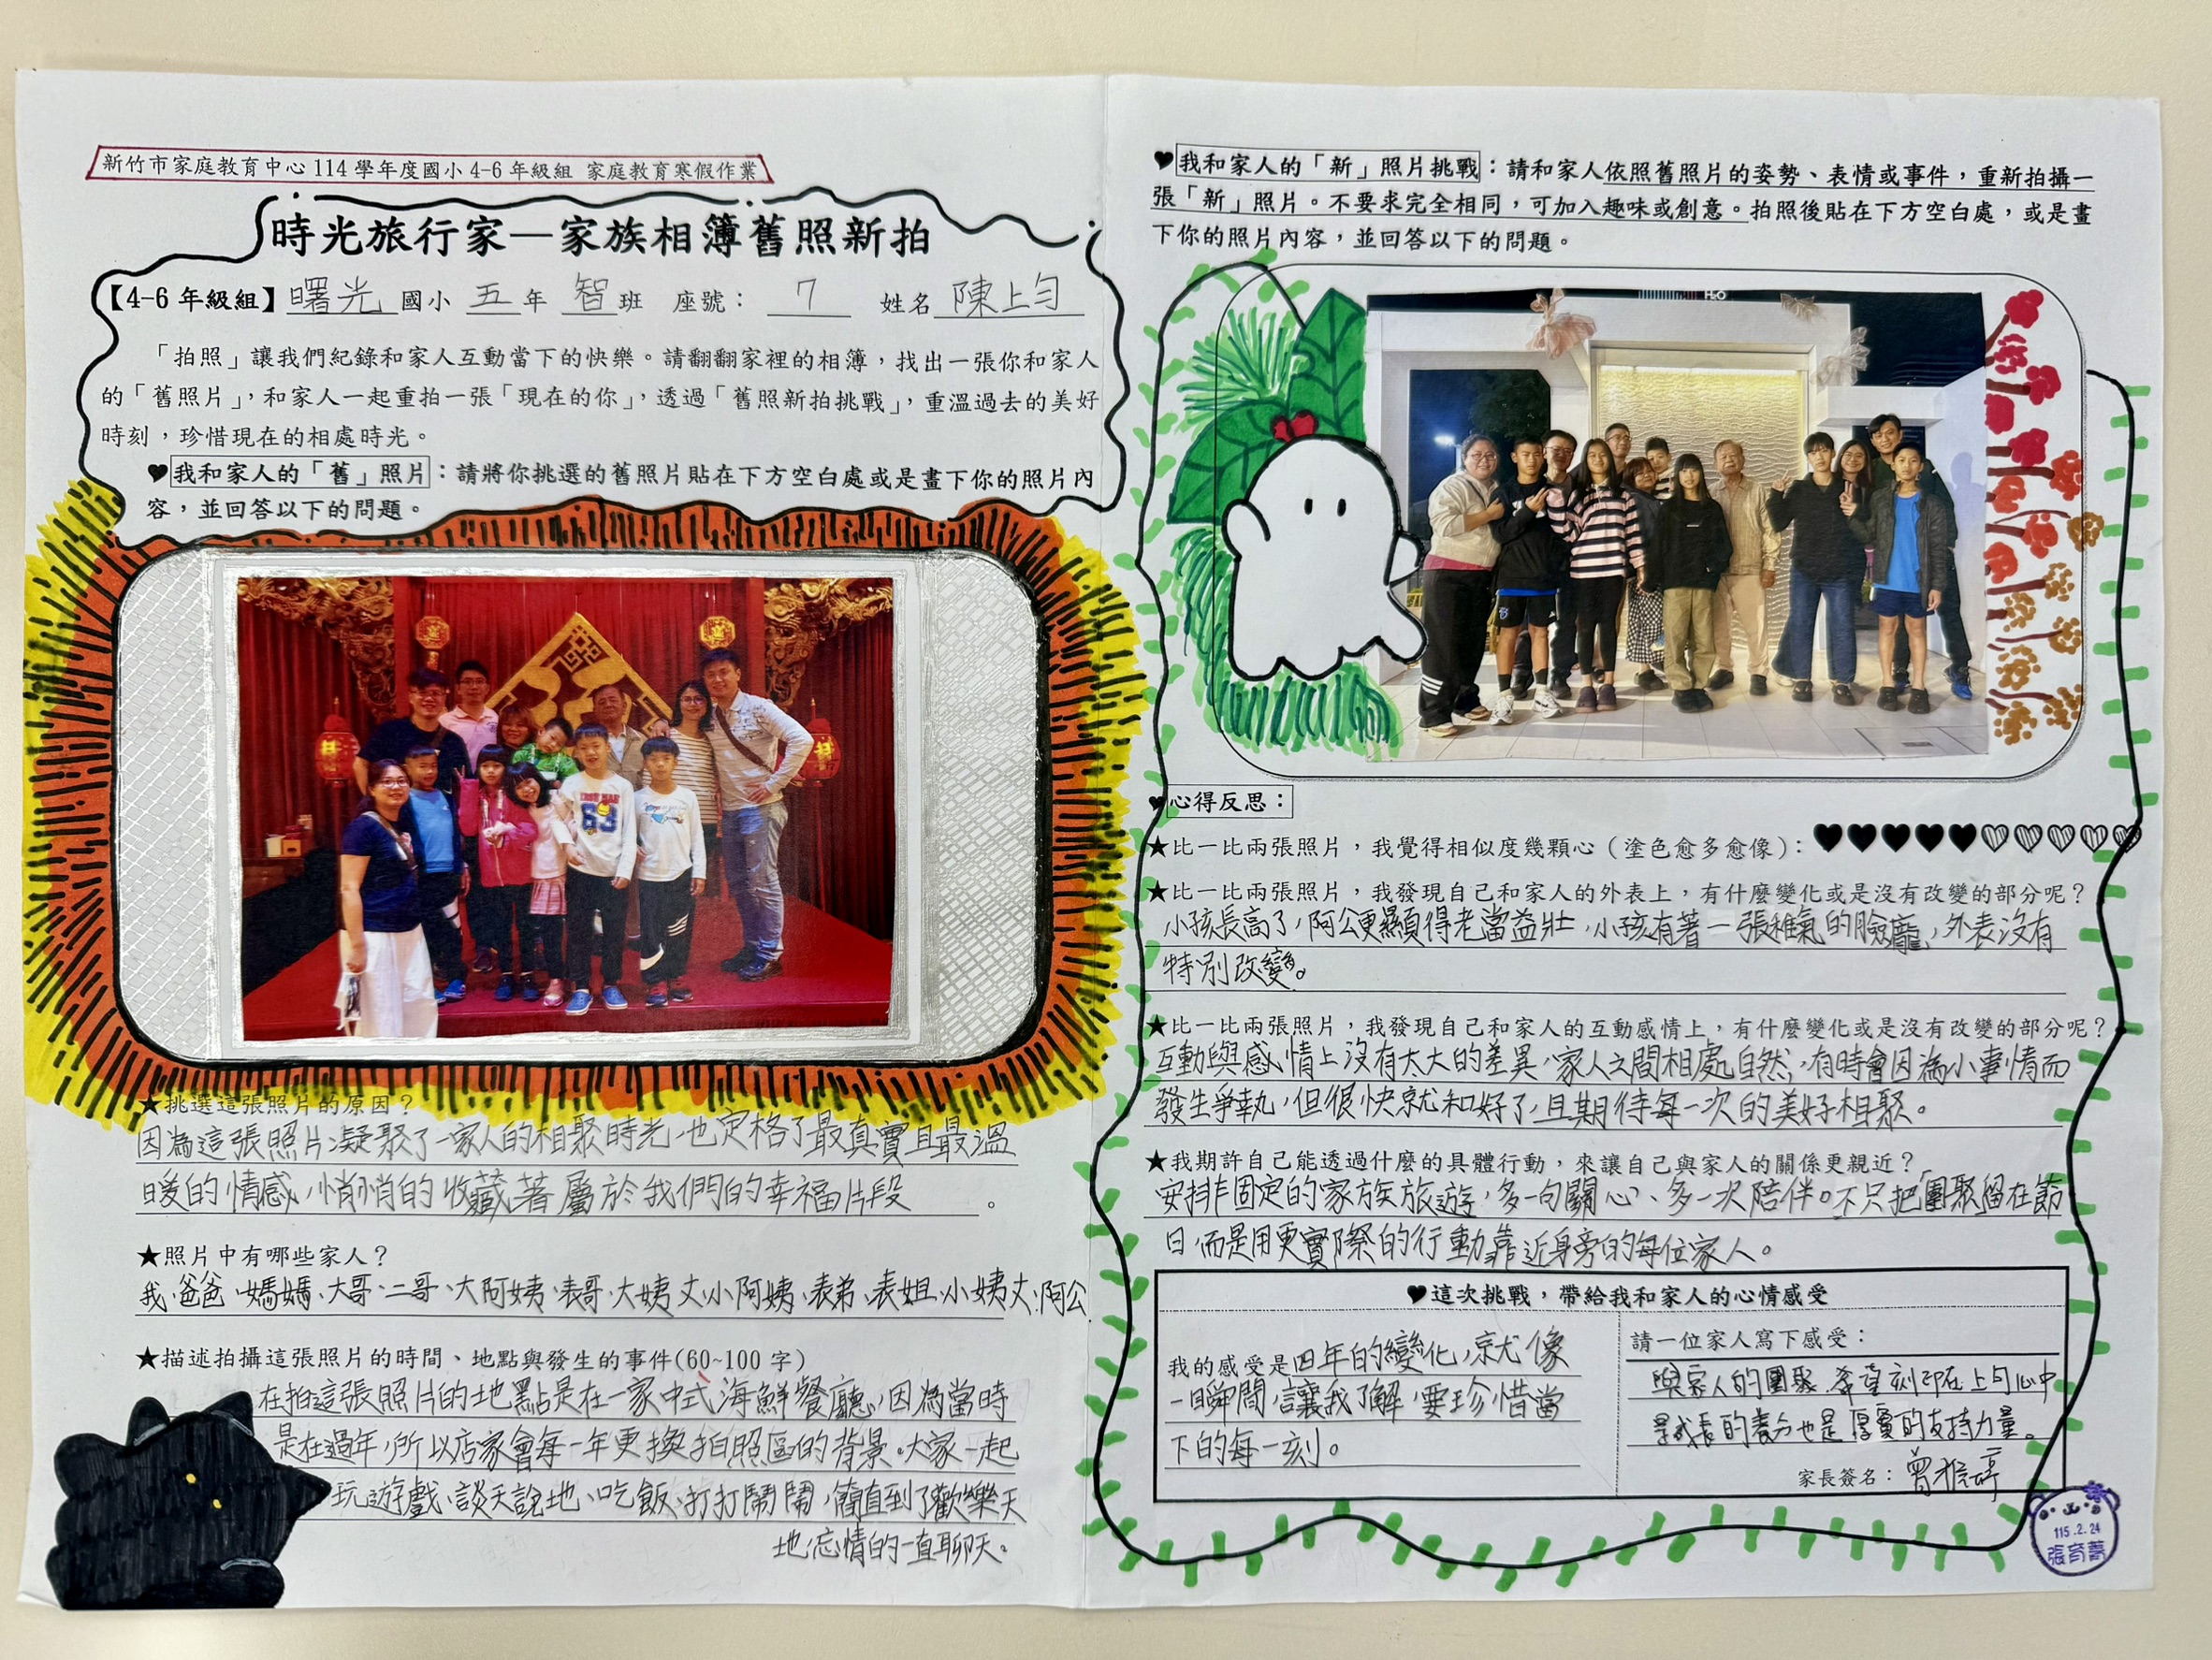 新竹市家庭教育中心 114 學年度國小 4-6 年級組 家庭教育寒假作業
時光旅行家—家族相簿舊照新拍
【4-6 年級組】曙光 國小 五 年 智 班 座號： 7 姓名 陳上勻
「拍照」讓我們紀錄和家人互動當下的快樂。請翻翻家裡的相簿，找出一張你和家人
的「舊照片」，和家人一起重拍一張「現在的你」，透過「舊照新拍挑戰」，重溫過去的美好
時刻，珍惜現在的相處時光。
♥我和家人的「舊」照片：請將你挑選的舊照片貼在下方空白處或是畫下你的照片內
容，並回答以下的問題。
63
★挑選這張照片的原因？
因為這張照片凝聚了一家人的相聚時光，也定格了最真實且最溫
暖的情感，悄悄的收藏著屬於我們的幸福片段。
★照片中有哪些家人？
我、爸爸、媽媽、大哥、二哥、大阿姨、表哥、大姨丈、小阿姨、表弟、表姐、小姨丈、阿公
★描述拍攝這張照片的時間、地點與發生的事件(60~100 字)
在拍這張照片的地點是在一家中式海鮮餐廳，因為當時
是在過年，所以店家會每一年更換拍照區的背景。大家一起
玩遊戲、談天說地、吃飯、打打鬧鬧，簡直到了歡樂天
地，忘情的一直聊天。
♥我和家人的「新」照片挑戰：請和家人依照舊照片的姿勢、表情或事件，重新拍攝一
張「新」照片。不要求完全相同，可加入趣味或創意。拍照後貼在下方空白處，或是畫
下你的照片內容，並回答以下的問題。
H2O
♥心得反思：
★比一比兩張照片，我覺得相似度幾顆心（塗色愈多愈像）：♥♥♥♥♥♡♡♡♡♡
★比一比兩張照片，我發現自己和家人的外表上，有什麼變化或是沒有改變的部分呢？
小孩長高了，阿公更顯得老當益壯，小孩有著一張稚氣的臉龐，外表沒有
特別改變。
★比一比兩張照片，我發現自己和家人的互動感情上，有什麼變化或是沒有改變的部分呢？
互動與感情上沒有太大的差異，家人之間相處自然，有時會因為小事情而
發生爭執，但很快就和好了，且期待每一次的美好相聚。
★我期許自己能透過什麼的具體行動，來讓自己與家人的關係更親近？
安排固定的家族旅遊，多一句關心、多一次陪伴。不只把團聚留在節
日，而是用更實際的行動靠近身旁的每位家人。
♥這次挑戰，帶給我和家人的心情感受
我的感受是四年的變化，就像
一瞬間，讓我了解，要珍惜當
下的每一刻。
請一位家人寫下感受：
與家人的團聚，希望刻印在上勻心中
是成長的養分也是厚實的支持力量。
家長簽名：曾
115.2.24
張育菁